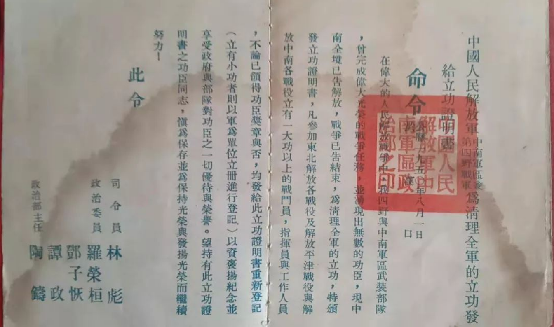 中國人民解放軍
中南軍區
第四野戰軍
為清理全軍的立功發
給立功證明書
命令
年八月一日
口
人民
解放軍中
南軍區政
治部之印
在偉大的人民解放戰爭中我四野與中南軍區武裝部隊
,曾完成偉大光榮的戰爭任務,並湧現出無數的功臣,現中
南全境已告解放,戰爭已告結束,為清理全軍的立功,特頒
發立功證明書,凡參加東北解放各戰役及解放平津戰役與解
放中南各戰役立有一大功以上的戰鬥員,指揮員與工作人員
,不論已領得功臣獎章與否,均發給此立功證明書重新登記
(立有小功者則以軍為單位立冊進行登記)以資褒揚紀念並
享受政府與部隊對功臣之一切優待與榮譽。望持有此立功證
明書之功臣同志,慎為保存並為保持光榮與發揚光榮而繼續
努力!
此令
司令員 林彪
政治委員 羅榮桓
鄧子恢
譚政
政治部主任 陶鑄